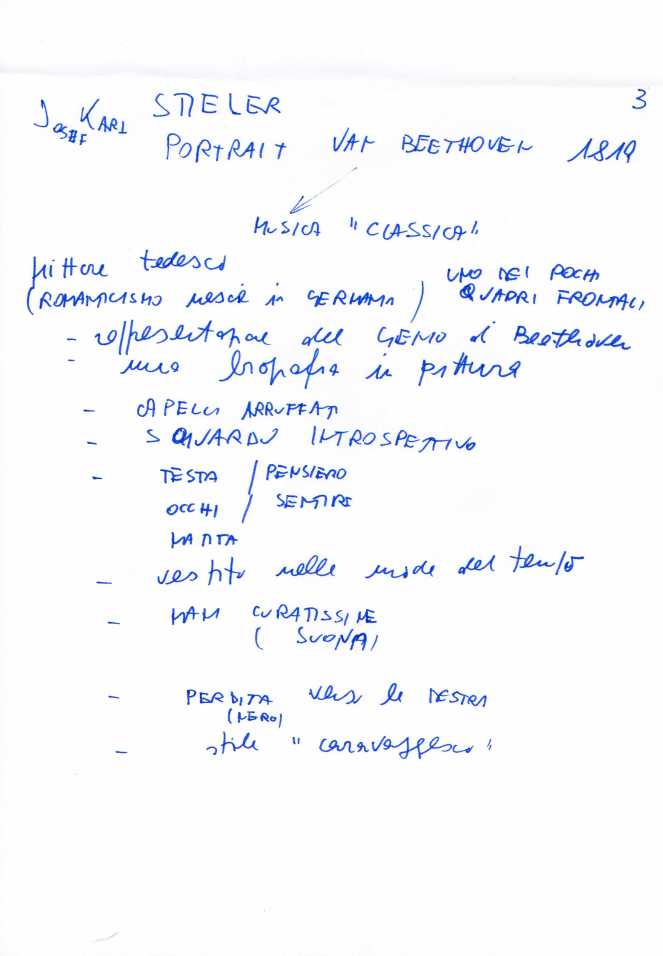 3
JOSEF KARL STIELER
PORTRAIT VAN BEETHOVEN 1819
MUSICA "CLASSICA"
pittore tedesco
(ROMANTICISMO nasce in GERMANIA)
UNO DEI POCHI
QUADRI FRONTALI
- rappresentazione del GENIO di Beethoven
- una biografia in pittura
- CAPELLI ARRUFFATI
- SGUARDO INTROSPETTIVO
- TESTA / PENSIERO
OCCHI / SENTIRE
MATITA
- vestito nella moda del tempo
- MANI CURATISSIME
( SUONA)
- PERDITA verso la DESTRA
(NERO)
- stile "caravaggesco"